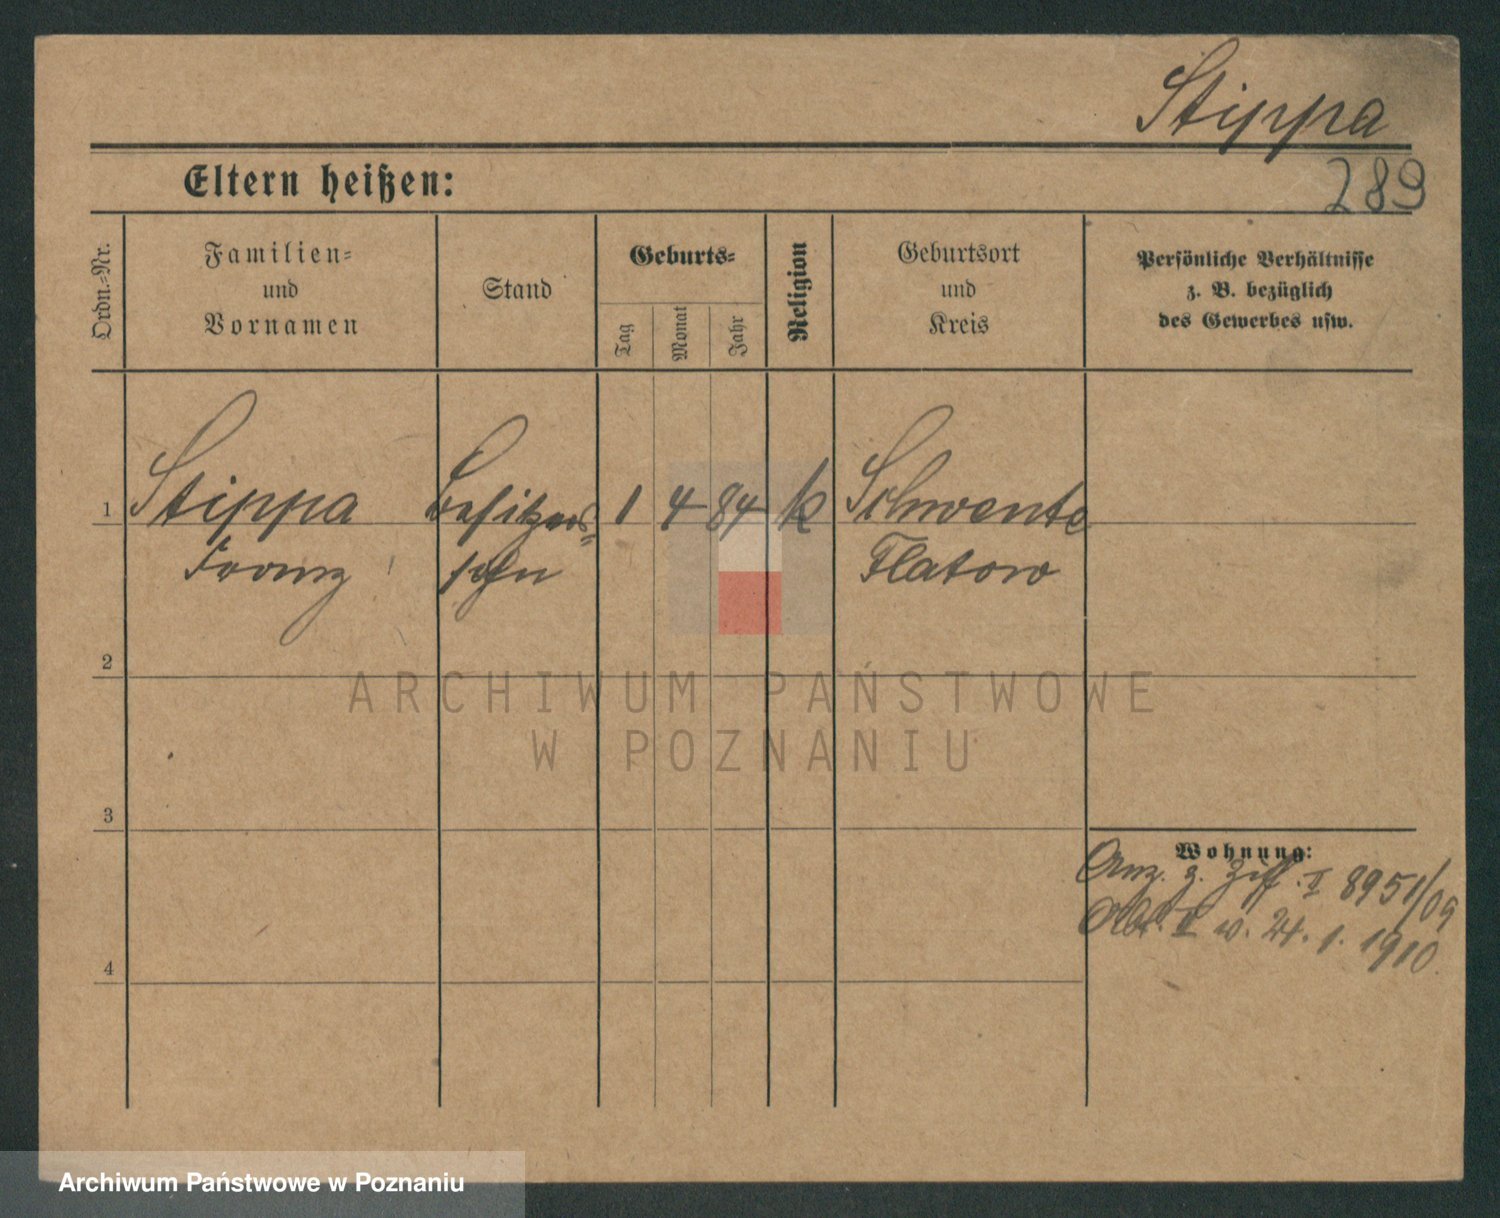 Stippa
289
Eltern heißen:
Ordn.-Nr.
Familien- und Vornamen
Stand
Geburts-
Tag
Monat
Jahr
Religion
Geburtsort und Kreis
Persönliche Verhältnisse
z. B. bezüglich
des Gewerbes usw.
1 Stippa Besitzers- 1 4 84 k Schwente
Franz sohn Flatow
2
3
4
Wohnung:
Anz. z. Ziff. II 8951/09
Abt. II v. 24. 1. 1910.
ARCHIWUM PAŃSTWOWE
W POZNANIU
Archiwum Państwowe w Poznaniu